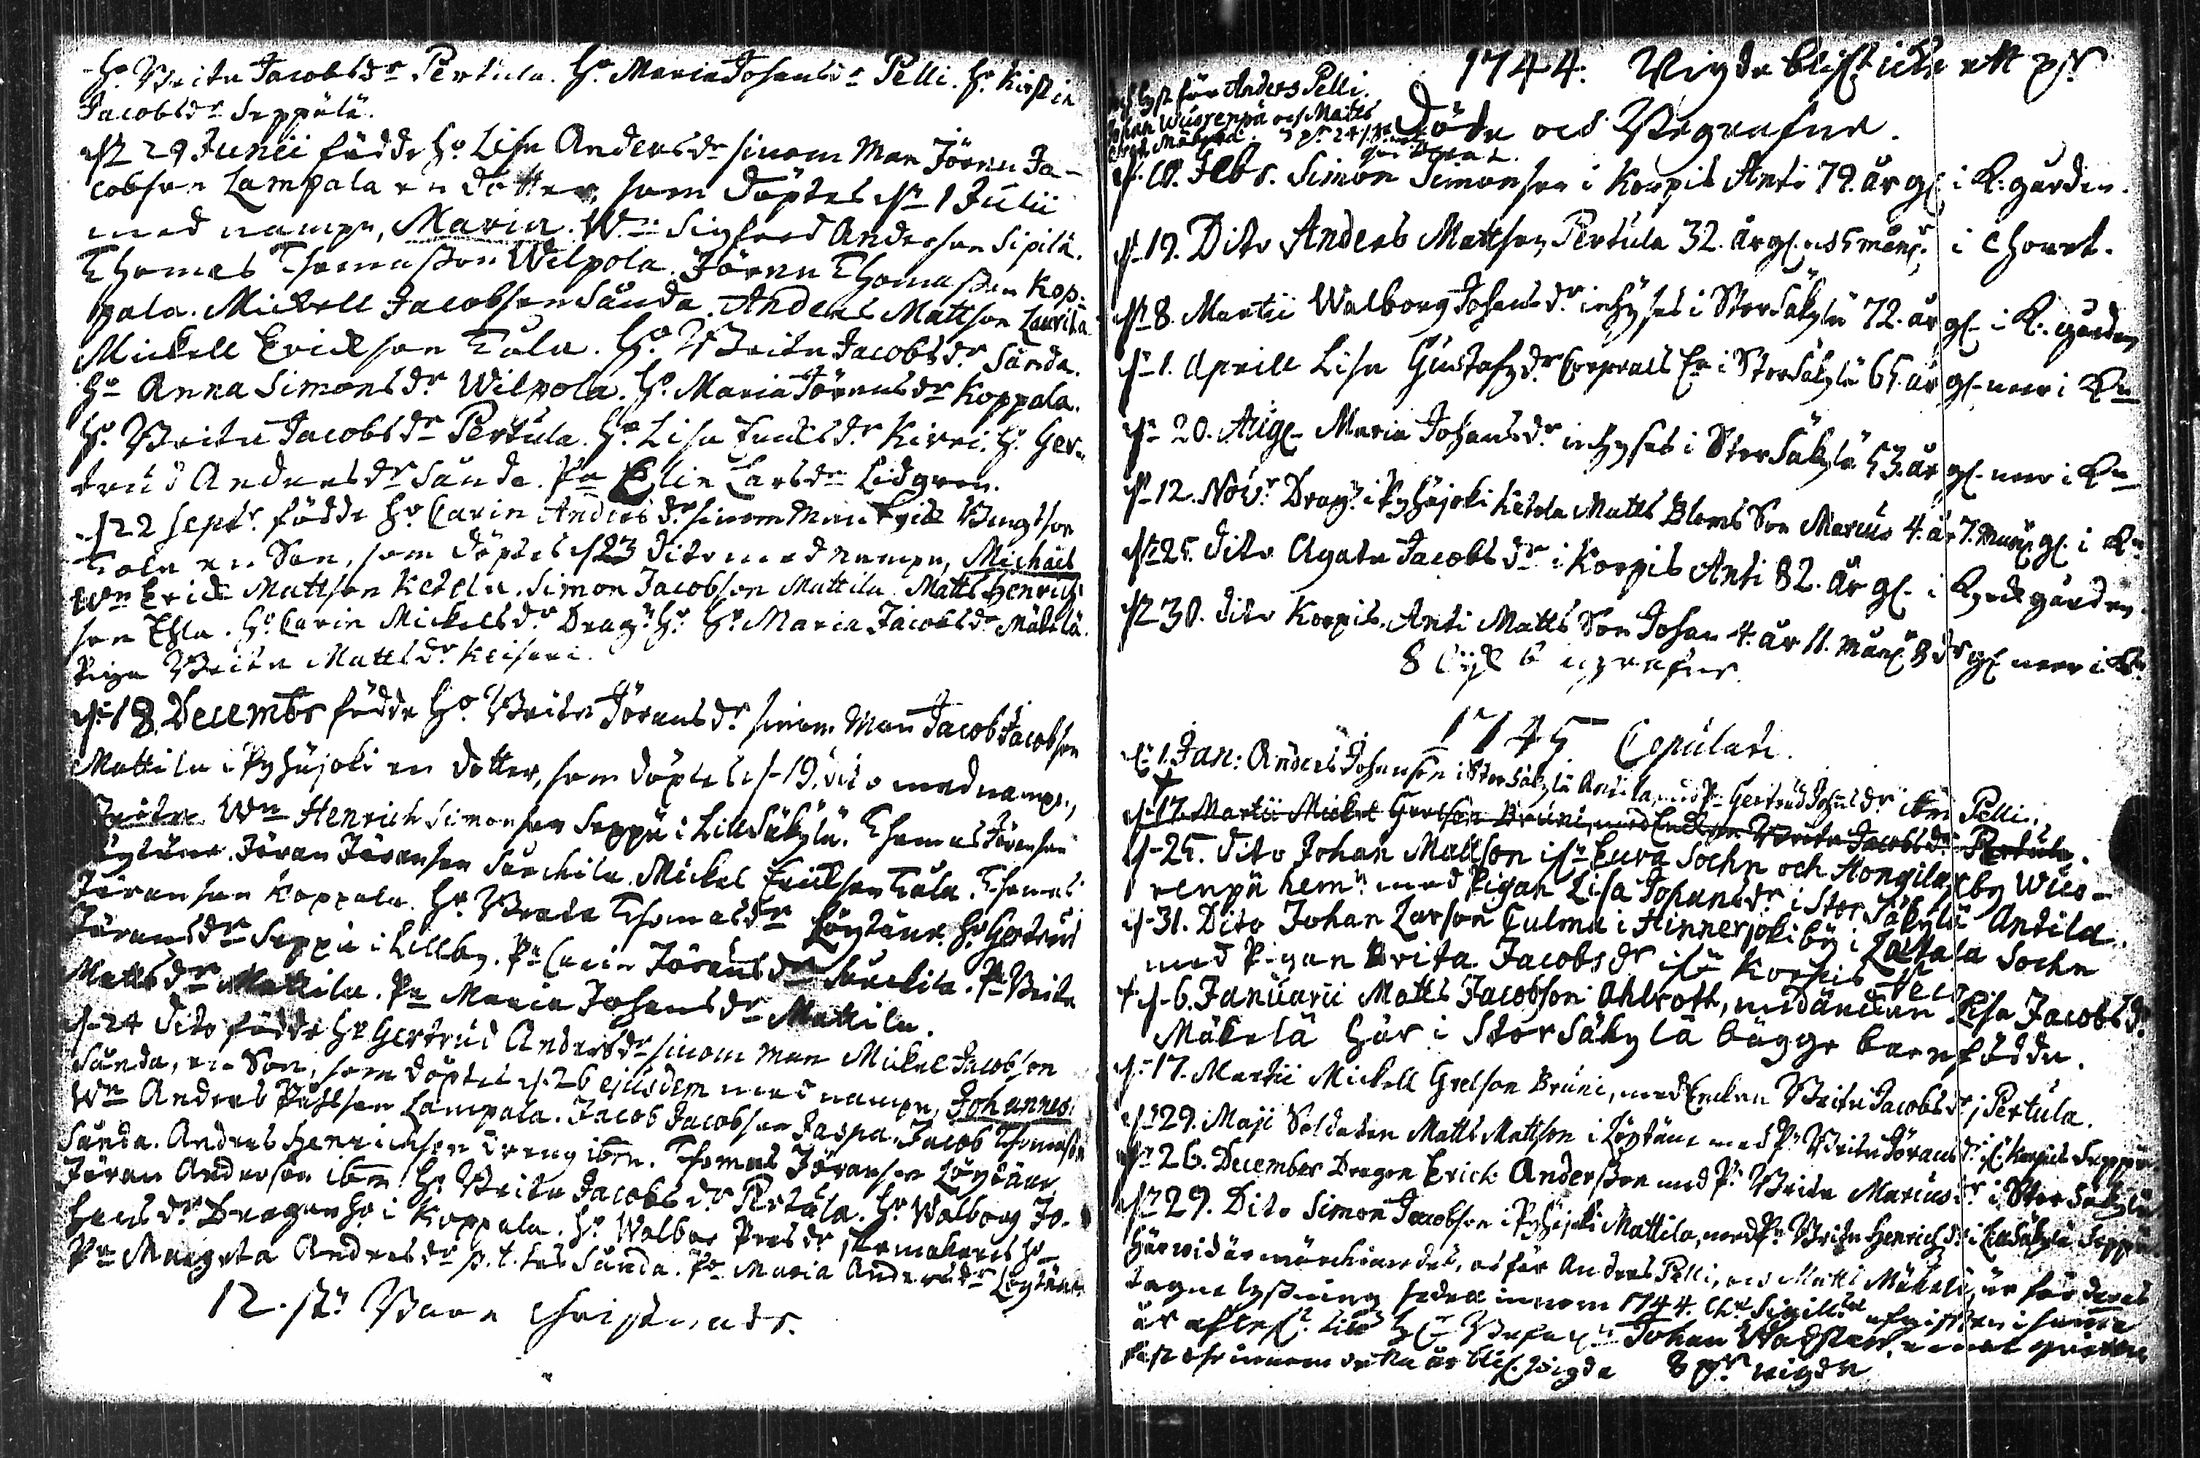 H:o Brita Jacobsd:r Pertula. H:o Maria Johansd:r Pelli. H:o Kirstin
Jacobsd:r Seppälä.
d. 29 Junii födde H:o Lisa Andersd:r sinom Man Jöran Ja-
cobson Lampala en dotter, som döptes d. 1 Julii
med nampn, Maria. W:n Sigfred Anderson Sipilä.
Thomas Thomasson Wilpola. Jöran Thomasson Kop-
pala. Mickell Jacobson Sanda. Anders Mattson Laurila
Mickell Erickson Tala. H:o Brita Jacobsd:r Sanda.
H:o Anna Simonsd:r Wilpola. H:o Maria Jöransd:r Koppala.
H:o Brita Jacobsd:r Pertula. H:o Lisa d:r H:o Ger-
trud Andersd:r Sanda. P:a Elin Larsd:r Lidgren.
d. 22 Sept:r födde H:o Carin Andersd:r sinom Man Erick Bengtson
Tola en Son, som döptes d. 23 dito med nampn, Michael
W:n Erick Mattson Ketela. Simon Jacobson Mattila. Matts Henrich-
son Ehla. H:o Carin Mickelsd:r Drag:n H:o H:o Maria Jacobsd:r Mäkelä.
Piga Brita Mattsd:r Keisari.
d. 18 Decembr födde H:o Brita Jöransd:r sinom Man Jacob Jacobson
Mattila i Pyhäjoki en dotter, som döptes d. 19 dito med nampn,
W:n Henrich Simonson Seppä i Lillsäkylä. Thomas Jöranson
Löytäne. Jöran Jöranson Sarckila. Mickel Erickson Tala. Thomas
Jöranson Koppala. H:o Brita Thomasd:r Löytäne. H:o Gertrud
Jöransd:r Seppä i Lillby. P:a Carin Jöransd:r Sarckila. P:a Brita
Mattsd:r Mattila. P:a Maria Johansd:r Mattila.
d. 24 dito födde H:o Gertrud Andersd:r sinom man Mickel Jacobson
Sanda, en Son, som döptes d. 26 ejusdem med nampn, Johannes.
W:n Anders Påhlson Lampala. Jacob Jacobson Jaspa. Jacob Thomasson
Sanda. Anders Henrichson dreng ibm. Thomas Jöranson Löytäne
Jöran Anderson ibm H:o Brita Jacobsd:r Pertula. H:o Walborg Jo-
hansd:r Dragon H:o i Koppala. H:o Walbor Persd:r skomakares H:o
P:a Margeta Andersd:r p.t. hos Sanda. P:a Maria Andersd:r Löytäne
12. st: Barn Christnade.
1744. Vigde blef icke ett p:r
lyst för Anders Pelli.
Johan Wuorenpä och Matts
Mäkelä.
Döde och Begrafne.
d. 18. Febr. Simon Simonson i Korpis Anti 79. år gl. i K:gården.
d. 19. Dito Anders Mattson Pertula 32. år gl. och 5 mån. i Choret.
d. 8. Martii Walborg Johansd:r inhyses i Storsäkylä 72. år gl. i K:gården
d. 1. Aprill Lisa Gustafsd:r Corporals Enk. i Storsäkylä 65. år gl. ner i K:n
d. 20. Aug. Maria Johansd:r inhyses i Storsäkylä 53. år gl. ner i K:n
d. 12. Nov:r Drag:n i Pyhäjoki Ketela Matts Bloms Son Marcus 4. år 7. mån. gl. i K:n
d. 25. dito Agata Jacobsd:r i Korpis Anti 82. år gl. i Kyrckgården.
d. 30. dito Korpis Anti Matts Son Johan 4. år 11. mån. 8 d:r gl. ner i K:n
8 lijk begrafne.
1745 Copulati.
d. 1. Jan: Anders Johanson i Storsäkylä Antila, med P:n Gertrud Johansd:r ibm Pelli.
d. 17. Martii Mickel Gretson Bruni, med Enckan Brita Jacobsd:r Pertula.
d. 25. dito Johan Mattson i Eura Sochn och Hongilax by Wuo-
renpä hem:n med Pigan Lisa Johansd:r i Stor Säkylä Antila.
d. 31. Dito Johan Larson Tulma i Hinnerjoki by i Lattala Sochn
med Pigan Brita Jacobsd:r ifr. Korpis
+ d. 6. Januarii Matts Jacobson Ahlrott, med änckan Lisa Jacobsd:r
Mäkelä här i Stor Säkylä bägge barnfödda.
d. 17. Martii Mickell Gretson Bruni, med Enckan Brita Jacobsd:r i Pertula.
d. 29. Maji Soldaten Matts Mattson i Löytäne med P:n Brita Jöransd:r ifr. Korpis Seppä
d. 26. December Dragon Erich Andersson med P:n Brita Marcusd:r i Stor Säkylä
d. 29. Dito Simon Jacobson i Pyhäjoki Mattila, med P:n Brita Henrichsd:r i Lillsäkylä Seppä.
Härwid är märckiandes, at för Anders Pelli, och Matts Mäkelä, är för deras
tagne lysning sedan innom 1744. Ch:t Sigill:te afgiften i samma
år Johan Wadsten,
fast the innom detta år blef. wigde 8 p:r wigde